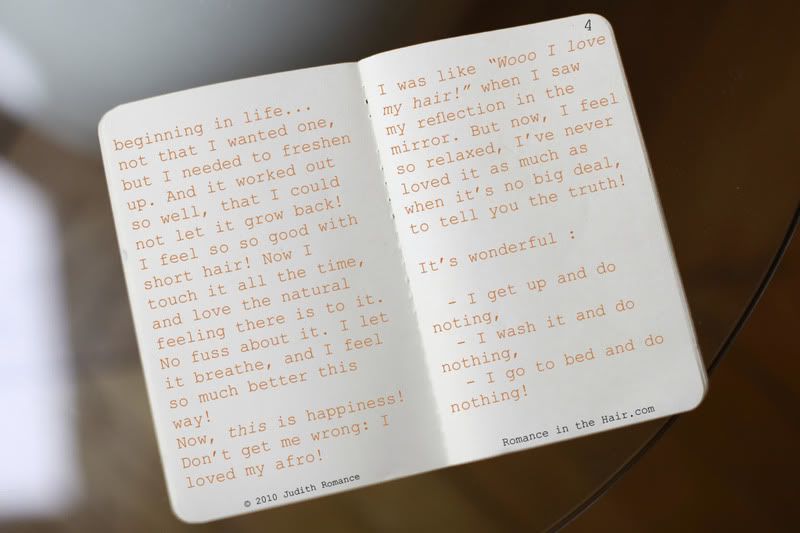 beginning in life...
not that I wanted one,
but I needed to freshen
up. And it worked out
so well, that I could
not let it grow back!
I feel so so good with
short hair! Now I
touch it all the time,
and love the natural
feeling there is to it.
No fuss about it. I let
it breathe, and I feel
so much better this
way!
Now, this is happiness!
Don't get me wrong: I
loved my afro!
© 2010 Judith Romance
4
I was like "Wooo I love
my hair!" when I saw
my reflection in the
mirror. But now, I feel
so relaxed, I've never
loved it as much as
when it's no big deal,
to tell you the truth!
It's wonderful :
- I get up and do
noting,
- I wash it and do
nothing,
- I go to bed and do
nothing!
Romance in the Hair.com